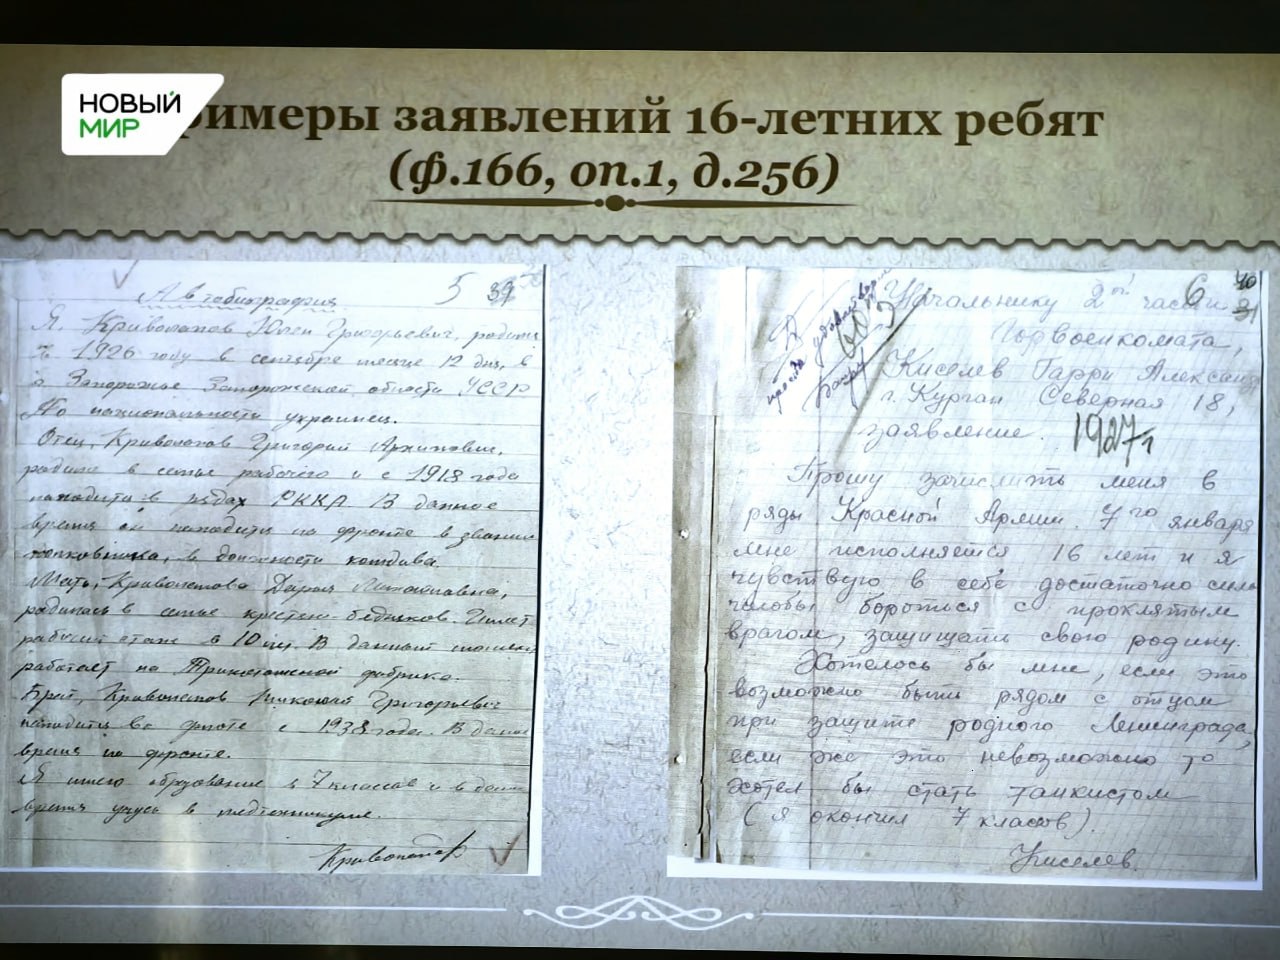 НОВЫЙ
МИР
римеры заявлений 16-летних ребят
(ф.166, оп.1, д.256)
5 39
Автобиография
Я, Криволапов Юлей Григорьевич, родился
в 1926 году в сентябре месяце 12 дня, в
г Запорожье Запорожской области УССР
По национальности украинец.
Отец, Криволапов Григорий Архипович,
родился в семье рабочего и с 1918 года
находится в рядах РККА В данное
время он находится на фронте в звании
полковника, в должности комдива.
Мать, Криволапова Дарья
родилась в семье крестьян-бедняков. Имеет
рабочий стаж в 10 лет. В данный момент
работает на Трикотажной фабрике.
Брат, Криволапов Николай Григорьевич
находится во флоте с 1938 года. В данное
время на фронте.
Я имею образование в 7 классов и в данное
время учусь в медтехникуме.
Криволапов
6 40
31
Начальнику 2ой части
Горвоенкомата,
Киселев Гарри Алексан
г. Курган Северная 18,
заявление. 1927 г
Прошу зачислить меня в
ряды Красной Армии. 7го января
мне исполняется 16 лет и я
чувствую в себе достаточно силы
чтобы бороться с проклятым
врагом, защищать свою родину.
Хотелось бы мне, если это
возможно быть рядом с отцом
при защите родного Ленинграда,
если же это невозможно то
хотел бы стать танкистом
(я окончил 7 классов).
Киселев.